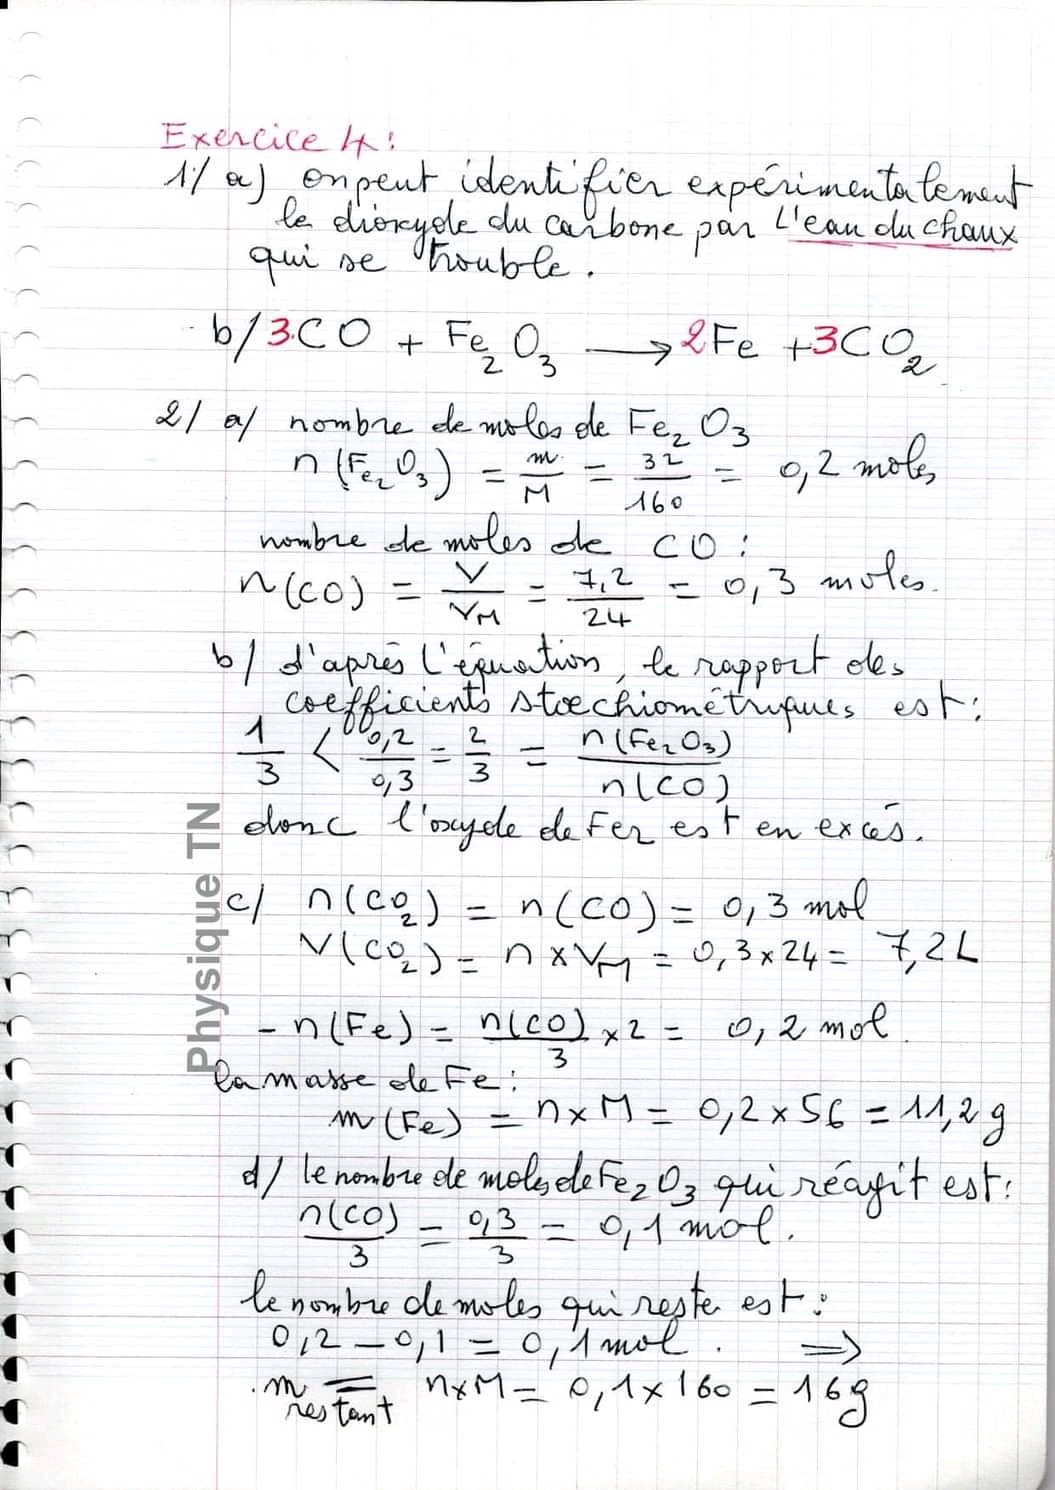 Exercice 4:
1/ a) on peut identifier expérimentalement
le dioxyde du carbone par L'eau du chaux
qui se trouble.
b/ 3CO + Fe₂O₃ → 2Fe + 3CO₂
2/ a/ nombre de moles de Fe₂O₃
n(Fe₂O₃) = m/M = 32/160 = 0,2 moles
nombre de moles de CO :
n(CO) = V/VM = 7,2/24 = 0,3 moles.
b/ d'après l'équation, le rapport des
coefficients stoechiométriques est :
1/3 < 0,2/0,3 = 2/3 = n(Fe₂O₃)/n(CO)
donc l'oxyde de Fer est en excés.
c/ n(CO₂) = n(CO) = 0,3 mol
V(CO₂) = n x VM = 0,3 x 24 = 7,2 L
- n(Fe) = n(CO)/3 x 2 = 0,2 mol.
la masse de Fe :
m(Fe) = n x M = 0,2 x 56 = 11,2 g
d/ le nombre de moles de Fe₂O₃ qui réagit est :
n(CO)/3 = 0,3/3 = 0,1 mol.
le nombre de moles qui reste est :
0,2 - 0,1 = 0,1 mol. ⇒
m restant = n x M = 0,1 x 160 = 16 g
Physique TN